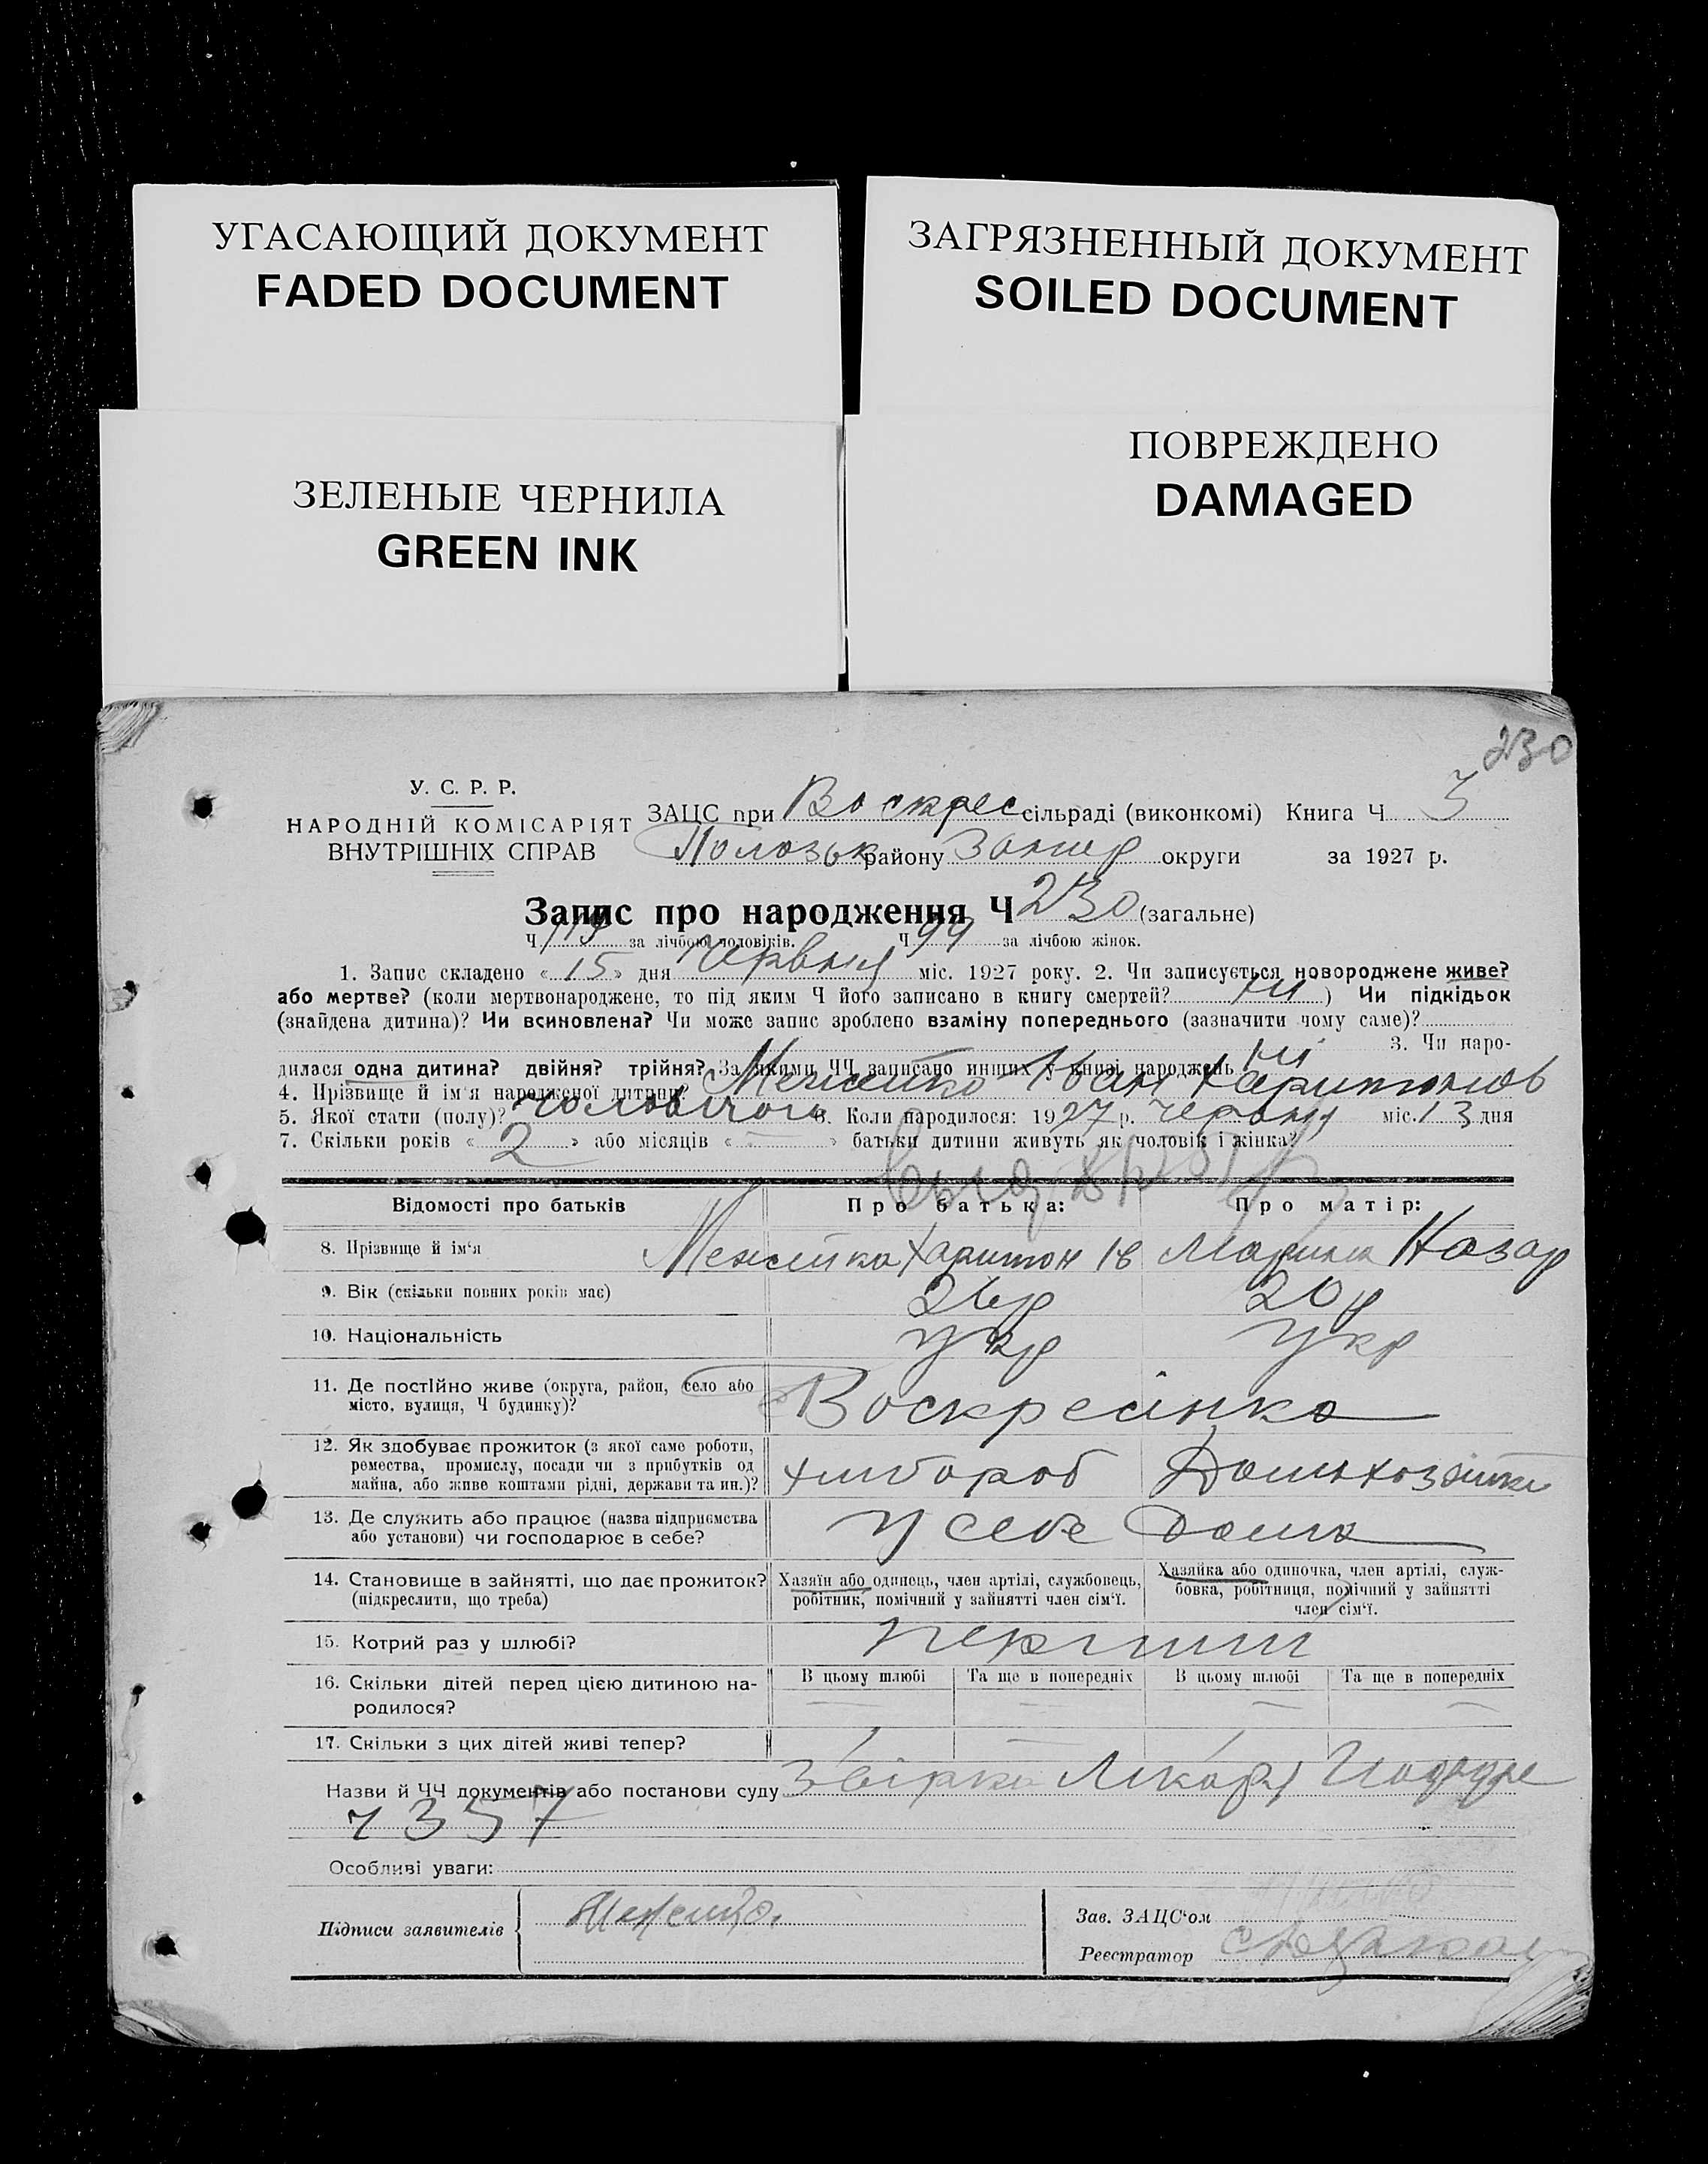 УГАСАЮЩИЙ ДОКУМЕНТ
FADED DOCUMENT
ЗАГРЯЗНЕННЫЙ ДОКУМЕНТ
SOILED DOCUMENT
ЗЕЛЕНЫЕ ЧЕРНИЛА
GREEN INK
ПОВРЕЖДЕНО
DAMAGED
230
У. С. Р. Р.
НАРОДНІЙ КОМІСАРІЯТ
ВНУТРІШНІХ СПРАВ
ЗАЦС при Воскрес сільраді (виконкомі) Книга Ч 3
Пологськ району Запор округи за 1927 р.
Запис про народження Ч 230 (загальне)
Ч за лічбою чоловіків. Ч 99 за лічбою жінок.
1. Запис складено « 15 » дня Червня міс. 1927 року. 2. Чи записується новороджене живе?
або мертве? (коли мертвонароджене, то під яким Ч його записано в книгу смертей? ) Чи підкідьок
(знайдена дитина)? Чи всиновлена? Чи може запис зроблено взаміну попереднього (зазначити чому саме)?
3. Чи наро-
дилася одна дитина? двійня? трійня? За якими ЧЧ записано инших у книзі народжень ні
4. Прізвище й ім'я народженої дитини? Іван Харитонов
5. Якої стати (полу)? чоловічого 6. Коли народилося: 1927 р. червня міс. 13 дня
7. Скільки років « 2 » або місяців « — » батьки дитини живуть як чоловік і жінка?
Відомості про батьків Про батька: Про матір:
8. Прізвище й ім'я Харитон Ів Марина Назар
9. Вік (скільки повних років має) 26 р 20 р
10. Національність Укр Укр
11. Де постійно живе (округа, район, село або
місто, вулиця, Ч будинку)? Воскресінка
12. Як здобуває прожиток (з якої саме роботи,
ремества, промислу, посади чи з прибутків од
майна, або живе коштами рідні, держави та ин.)? хлибороб Домохозяйка
13. Де служить або працює (назва підприємства
або установи) чи господарює в себе? У себе дома
14. Становище в зайнятті, що дає прожиток?
(підкреслити, що треба)
Хазяїн або одинець, член артілі, службовець,
робітник, помічний у зайнятті член сім'ї.
Хазяйка або одиночка, член артілі, служ-
бовка, робітниця, помічний у зайнятті
член сім'ї.
15. Котрий раз у шлюбі? перший
16. Скільки дітей перед цією дитиною на-
родилося?
В цьому шлюбі Та ще в попередніх В цьому шлюбі Та ще в попередніх
— — — —
17. Скільки з цих дітей живі тепер?
Назви й ЧЧ документів або постанови суду Лікаря
ч 357
Особливі уваги:
Підписи заявителів
Зав. ЗАЦС'ом
Реєстратор